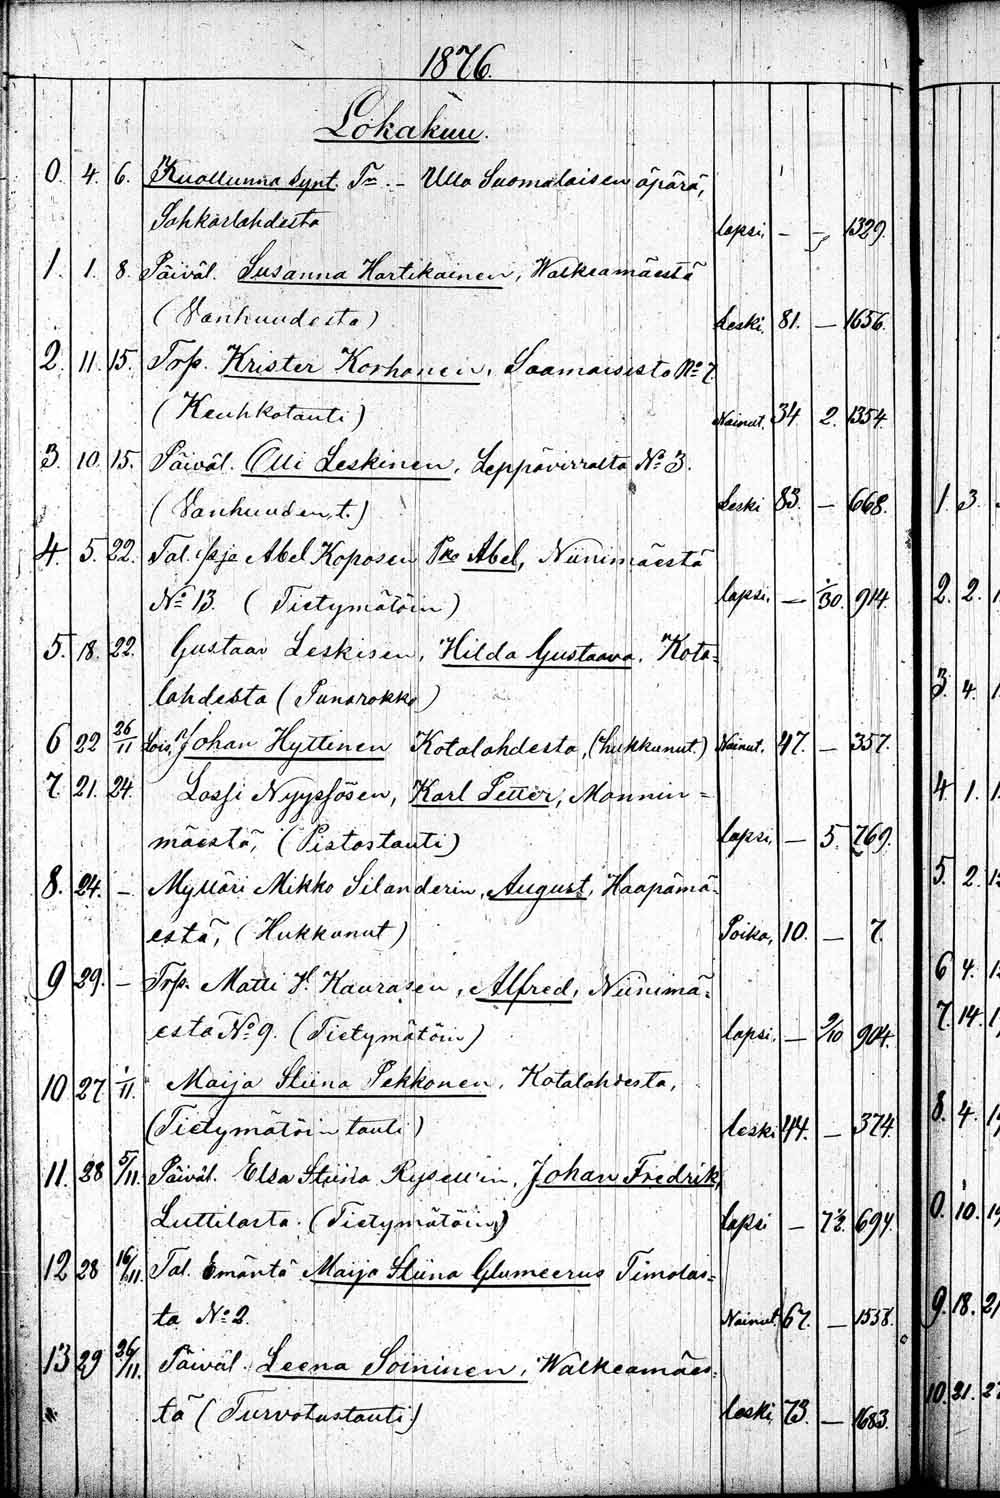 1876.
Lokakuu.
0. 4. 6. Kuollunna Synt. Tr. - Ulla Suomalaisen äpärä,
Sahkarlahdesta lapsi, - - 1329.
1. 1. 8. Päiväl. Susanna Hartikainen, Walkeamäestä
(Vanhuudesta) Leski. 81. - 1656.
2. 11. 15. Torp. Krister Korhonen, Saamaisista No 7.
(Keuhkotauti) Nainut. 34 2. 1354.
3. 10. 15. Päiväl. Olli Leskinen, Leppävirralta No 3.
(Vanhuuden t.) Leski 83. - 668.
4. 5. 22. Tal. Abel Koposen Pka Abel, Niinimäestä
No 13. (Tietymätöin) lapsi. - 1/30. 914.
5. 18. 22. Gustaav Leskisen, Hilda Gustaava. Kota=
lahdesta (Punarokko)
6 22 26/11 Lois. Johan Hyttinen Kotalahdesta, (hukkunut.) Nainut. 47. - 357.
7. 21. 24. Lassi Nyyssösen, Karl Petter, Monnin=
mäestä, (Pistostauti) lapsi, - 5. 769.
8. 24. - Mylläri Mikko Silanderin, August, Haapämä=
estä, (Hukkunut) Poika, 10. - 7.
9 29. - Torp. Matti H. Kaurasen, Alfred, Niinimä=
estä No 9. (Tietymätöin) lapsi. - 9/10 904.
10 27 1/11. Maija Stiina Pekkonen, Kotalahdesta,
(Tietymätöin tauti) leski 44. - 374.
11. 28 5/11. Päiväl. Elsa Stiina Johan Fredrik,
Luttilasta. (Tietymätöin) lapsi - 7½. 694.
12 28 16/11. Tal. Emäntä Maija Stiina Glumeerus Timolas=
ta No 2. Nainut. 67. - 1558.
13 29 26/11. Päiväl. Leena Soininen, Walkeamäes=
tä (Turvotustauti) leski, 73. - 1683.
1. 3.
2. 2.
3. 4.
4. 1.
5. 2.
6 4.
7. 14.
8. 4.
0. 10.
9. 18. 21
10. 21. 2